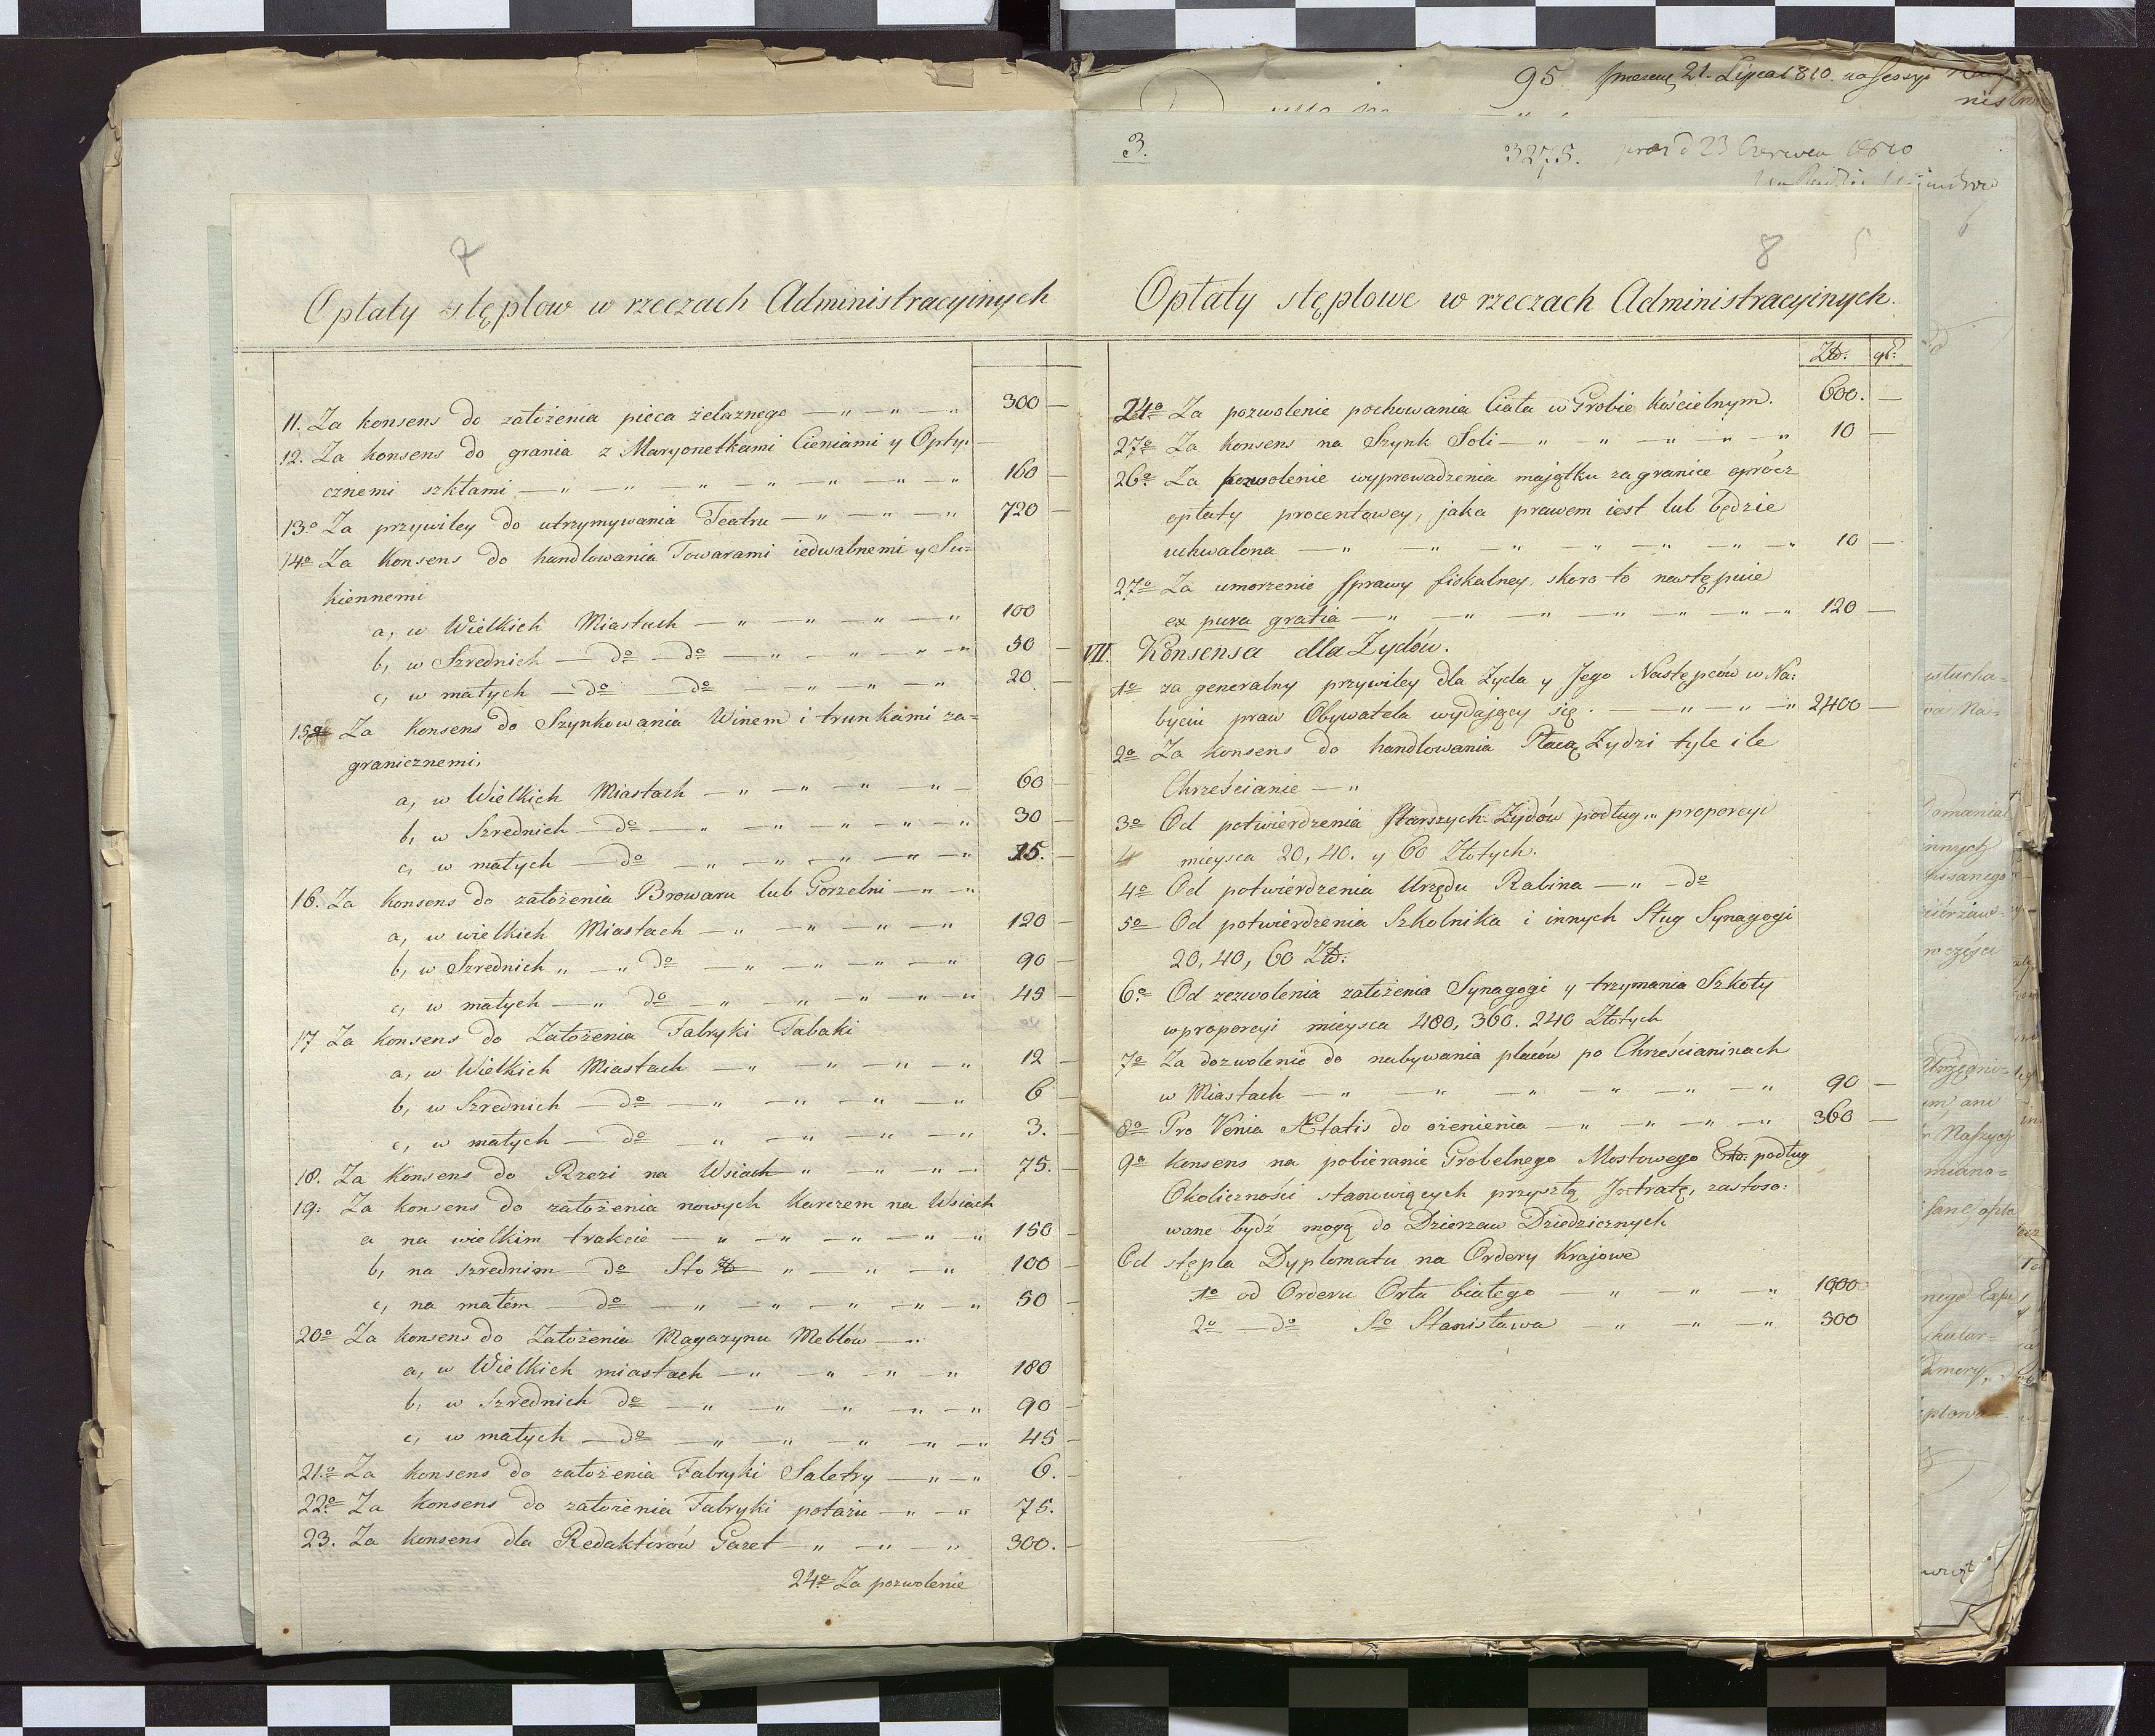 7
Opłaty stęplow w rzeczach Administracyinych
11. Za konsens do założenia pieca żelaznego — „ — „ — „ 300 —
12. Za konsens do grania z Maryonetkami Cieniami y Opty: —
cznemi szkłami — „ — „ — „ — „ — „ — „ — „ 160 —
13o Za przywiley do utrzymywania Teatru — „ — „ — „ 720 —
14o Za Konsens do handlowania Towarami iedwabnemi y Su=
kiennemi
a, w Wielkich Miastach — „ — „ — „ — „ 100
b, w Szrednich — do — do — „ — „ — „ — „ 50 —
c, w małych — do — do — „ — „ — „ 20 —
15o Za Konsens do Szynkowania Winem i trunkami za=
granicznemi,
a, w Wielkich Miastach — „ — „ — „ — „ — 60 —
b, w Szrednich — do — „ — „ — „ — „ — „ 30 —
c, w małych — do — „ — „ — „ — „ — „ 15. —
16. Za konsens do założenia Browaru lub Gorzelni — „ — „
a, w wielkich Miastach — „ — „ — „ — „ 120 —
b, w Szrednich „ — „ do — „ — „ — „ — „ 90 —
c, w małych — „ do — „ — „ — „ — „ — „ 45 —
17 Za konsens do Założenia Fabryki Tabaki
a, w Wielkich Miastach — „ — „ — „ — „ 12 —
b, w Szrednich — do — „ — „ — „ — „ 6 —
c, w małych — do — „ — „ — „ — „ 3. —
18. Za Konsens do Rzezi na Wsiach „ — „ — „ — „ 75. —
19: Za konsens do założenia nowych Karczem na Wsiach
a na wielkim trakcie — „ — „ — „ — „ — „ 150 —
b, na szrednim — do Sto zł — „ — „ — „ 100 —
c, na małém — do — „ — „ — „ — „ — „ 50 —
20o Za konsens do Założenia Magazynu Meblów — „
a, w Wielkich miastach — „ — „ — „ — „ 180
b, w Szrednich do — „ — „ — „ — „ — „ 90 —
c, w małych — do — „ — „ — „ — „ — „ 45 —
21.o Za konsens do założenia Fabryki Saletry — „ — „ 6. —
22o Za konsens do założenia Fabryki potażu — „ — „ 75.
23. Za konsens dla Redaktorów Gazet — „ — „ — „ 300. —
24o Za pozwolenie
95 21. Lipca 1810. na Sessyi
3. 3275. praes d 23 Czerwca 1810
8
Opłaty stęplowe w rzeczach Administracyinych.
Złł. gr:
24o Za pozwolenie pochowania Ciała w Grobie Kościelnym. 600. —
27o Za konsens na Szynk Soli — „ — „ — „ — „ — „ 10 —
26o Za pozwolenie wyprowadzenia majątku zagranice oprócz
opłaty procentowey, jaka prawem iest lub będzie
uchwalona — „ — „ — „ — „ — „ — „ — „ 10 —
27o Za umorzenie sprawy fiskalney, skoro to następuie
ex pura gratia — „ — „ — „ — „ — „ — „ — „ 120 —
VII. Konsensa dla Żydów.
1o za generalny przywiley dla Żyda y Jego Następców w Na:
byciu praw Obywatela wydaiący się. — — „ — „ — „ 2400 —
2o Za konsens do handlowania Płacą Żydzi tyle ile
Chrześcianie — „
3o Od potwierdzenia Starszych Żydów podług „ proporcyi
mieysca 20, 40. y 60 Złotych.
4o Od potwierdzenia Urzędu Rabina — „ — do
5o Od potwierdzenia Szkolnika i innych Sług Synagogi
20, 40, 60 Złł:
6o Od zezwolenia założenia Synagogi y trzymania Szkoły
w proporcyi mieysca 480, 360. 240 Złotych
7o Za dozwolenie do nabywania placów po Chrześcianinach
w Miastach — „ — „ — „ — „ — „ — „ 90 —
8o Pro Venia Ætatis do ożenienia — „ — „ — „ — „ 360 —
9o konsens na pobieranie Grobelnego Mostowego podług
Okoliczności stanowiących przyszłą Intratę, zastoso:
wane bydź mogą do Dzierzaw Dziedzicznych
Od stępla Dyplomatu na Ordery Krajowe
1o od Orderu Orła białego — „ — „ — „ 1000
2o — do So Stanisława — „ — „ — „ 300